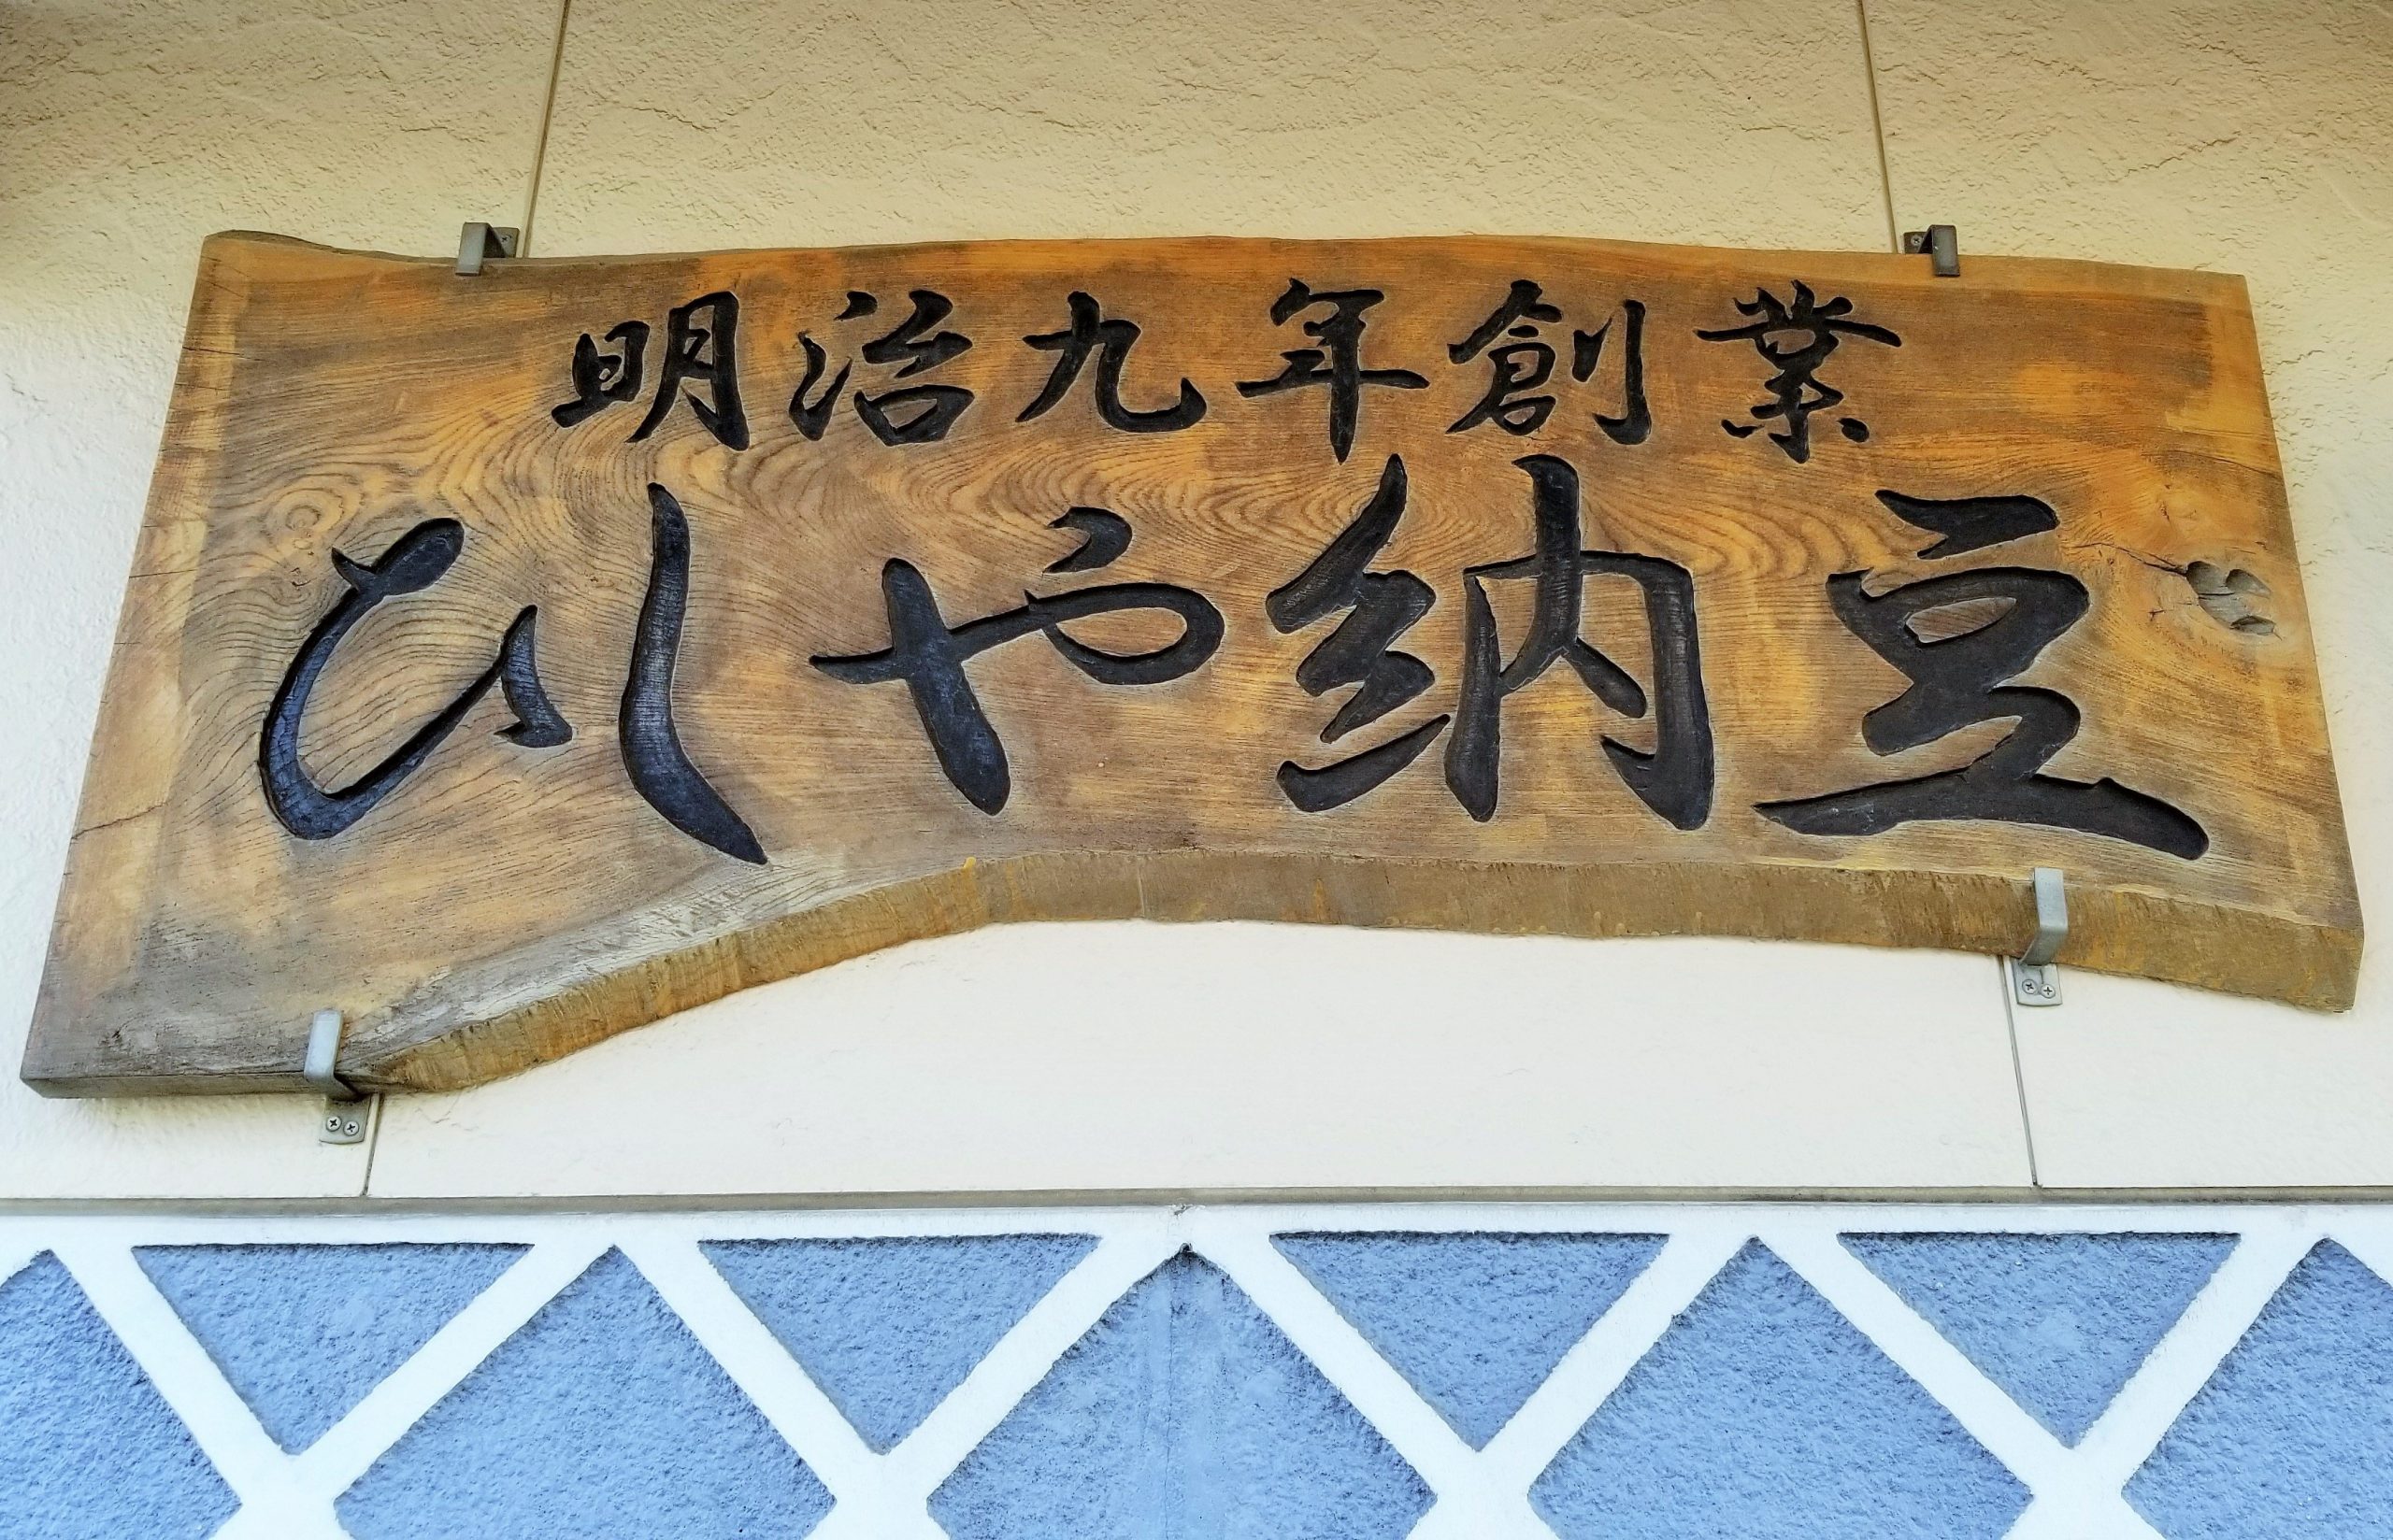 明治九年創業
ひしや納豆